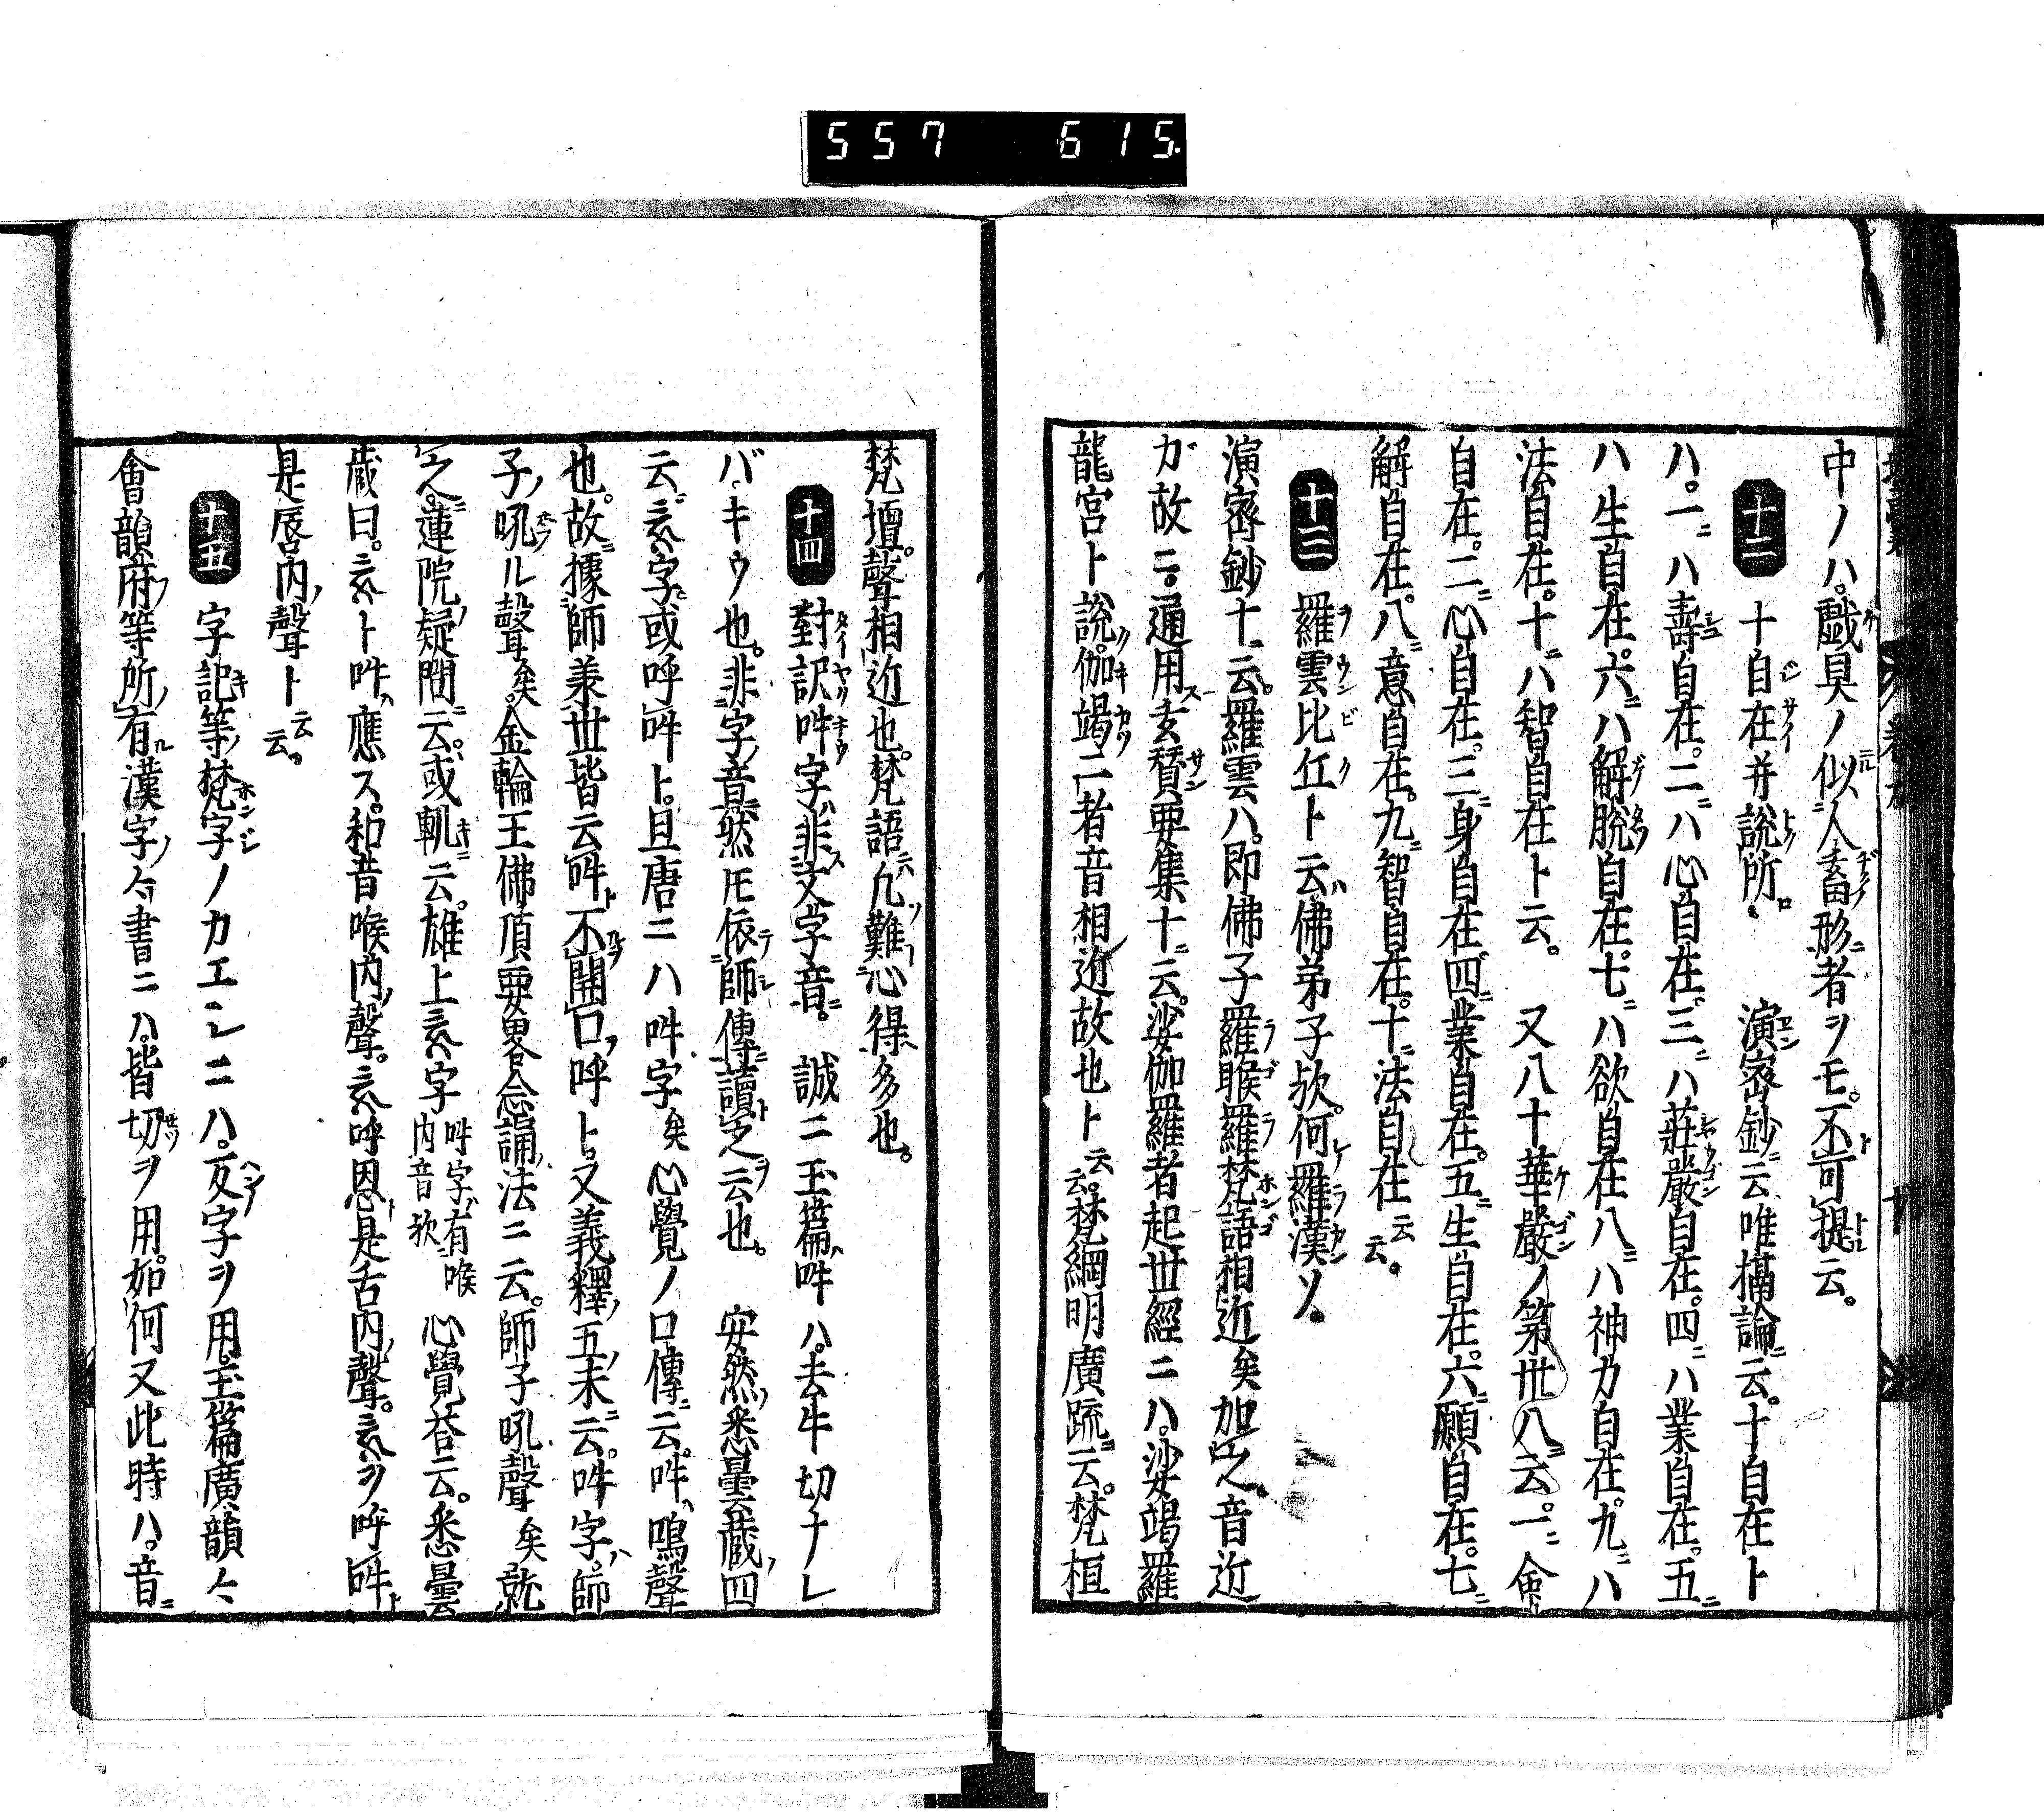 557 615.
中ノハ。戯具ノ似人畜形者ヲモ。不可提云。
十二 十自在并説所。 演宻鈔云唯攝論云。十自在ト
ハ。一ハ壽自在。二ハ心自在。三ハ莊嚴自在。四ハ業自在。五
ハ生自在。六ハ解脱自在。七ハ欲自在八ハ神力自在。九ハ
法自在。十ハ智自在ト云。 又八十華嚴ノ第卅八云。一命
自在。二心自在。三身自在四業自在。五生自在。六願自在。七
解自在。八意自在。九智自在。十法自在云云。
十三 羅雲比丘ト云ハ佛弟子欤。何羅漢ソ。
演宻鈔十云。羅雲ハ。即佛子羅睺羅梵語相近矣加之音近
ガ故ニ。通用玄賛要集十云。娑伽羅者起世經ニハ。娑竭羅
龍宮ト説。伽竭二者音相近故也ト云云。梵網明廣䟽云。梵桓
梵壇。聲相近也。梵語凢難心得多也。
十四 對訳吽字ハ非文字音。 誠ニ玉篇ハ吽ハ。去牛切ナレ
バキウ也。非字音然𪜈依師傳讀之云也。 安然悉曇藏四
云。字或呼吽ト。且唐ニハ吽字矣心覺ノ口傳云。吽ハ鳴聲
也。故據師兼世皆云吽不開口呼ト。又義釋五末云。吽字ハ師
子吼ル聲矣。金輪王佛頂要畧念誦法ニ云。師子吼聲矣就
之。蓮院疑問云。或軌云。雄上字吽字有喉内音欤心覺荅云。悉曇
藏曰。ト吽應ス。和昔喉内聲。呼恩是舌内聲。ヲ呼吽
是唇内聲ト云云。
十五 字記等梵字ノカエシニハ。反字ヲ用。玉篇廣韻今
會韻府等所有漢字今書ニハ。皆切ヲ用。如何又此時ハ。音